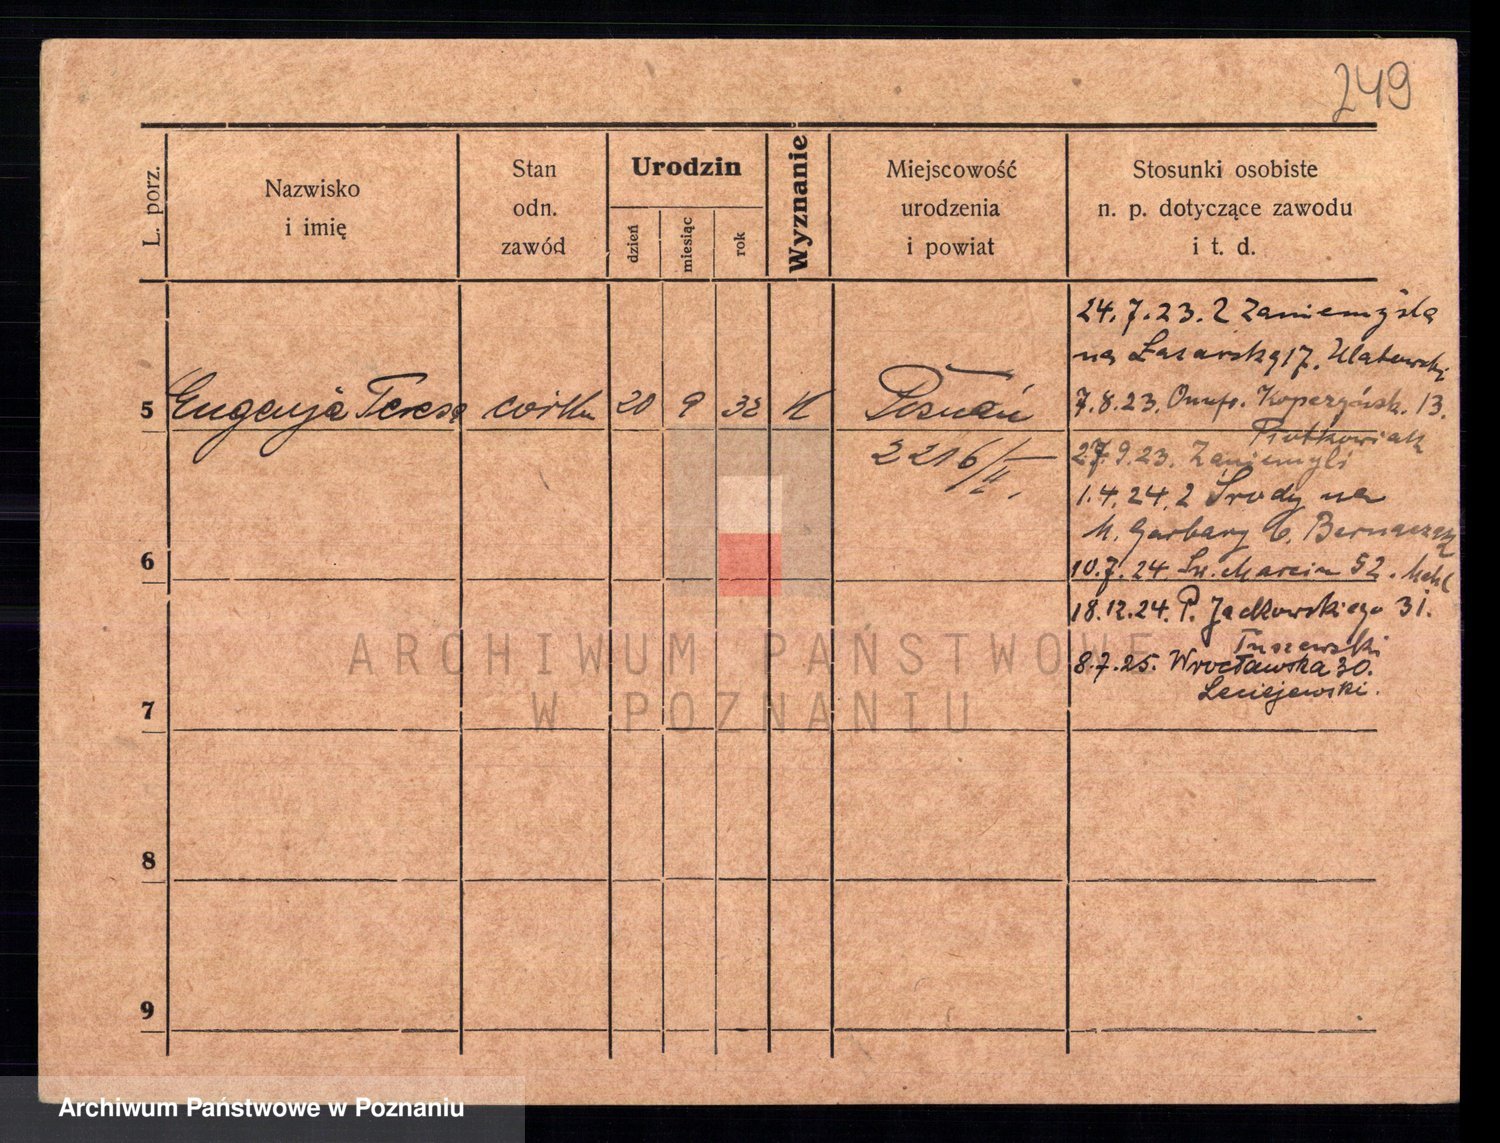 249
L. porz.
Nazwisko
i imię
Stan
odn.
zawód
Urodzin
dzień
miesiąc
rok
Wyznanie
Miejscowość
urodzenia
i powiat
Stosunki osobiste
n. p. dotyczące zawodu
i t. d.
24.7.23. Z Zaniemyśla
na Łazarską 17.
5 Eugenja Teresa córka 20 9 32 K Poznań
2216/II.
7.8.23. 13.
Piotkowiak
27.9.23. Zaniemyśl
1.4.24. Z Środy na
M. Garbary 6.
6
10.7.24. Św. Marcin 52.
18.12.24. P. Jackowskiego 31.
Tuszewski
8.7.25. Wrocławska 30.
Leciejewski.
7
8
9
ARCHIWUM PAŃSTWOWE
W POZNANIU
Archiwum Państwowe w Poznaniu